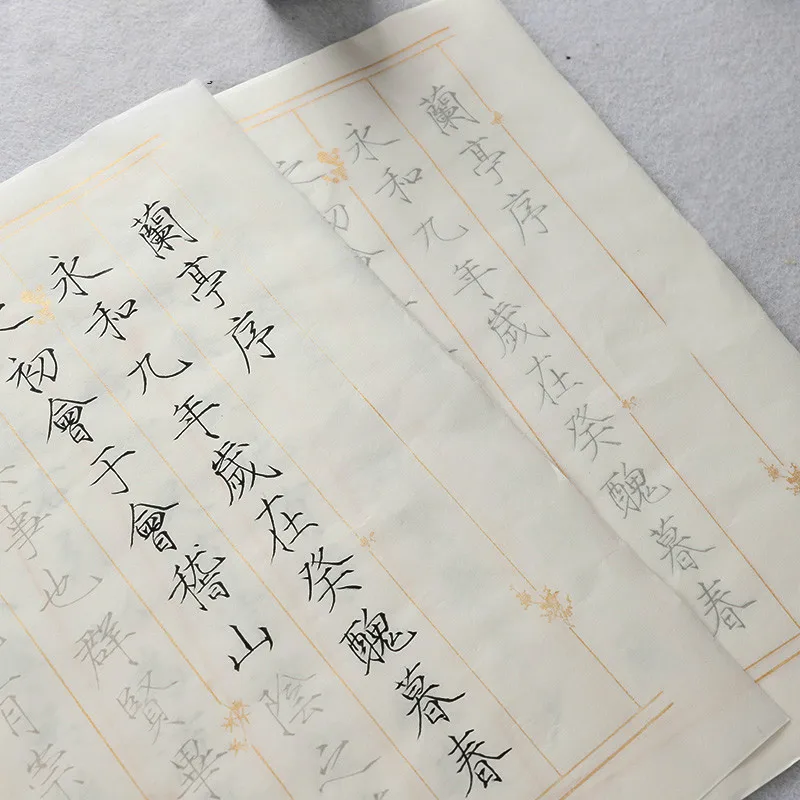 蘭亭序
永和九年歲在癸醜暮春
之初會于會稽山陰之
事也群賢畢
有崇
蘭亭序
永和九年歲在癸醜暮春
之初會